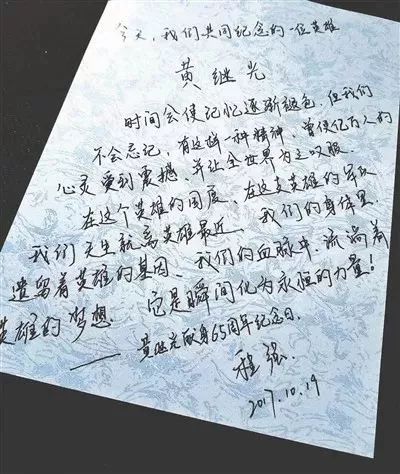 今天，我们共同纪念的一位英雄
黄继光
时间会使记忆逐渐褪色，但我们
不会忘记，有这样一种精神，曾使亿万人的
心灵受到震撼，并让全世界为之叹服.
在这个英雄的国度、在这支英雄的军队
我们天生就离英雄最近、我们的身体里.
遗留着英雄的基因、我们的血脉中.流淌着
英雄的梦想. 它是瞬间化为永恒的力量!
——黄继光献身65周年纪念日.
程强.
2017.10.19